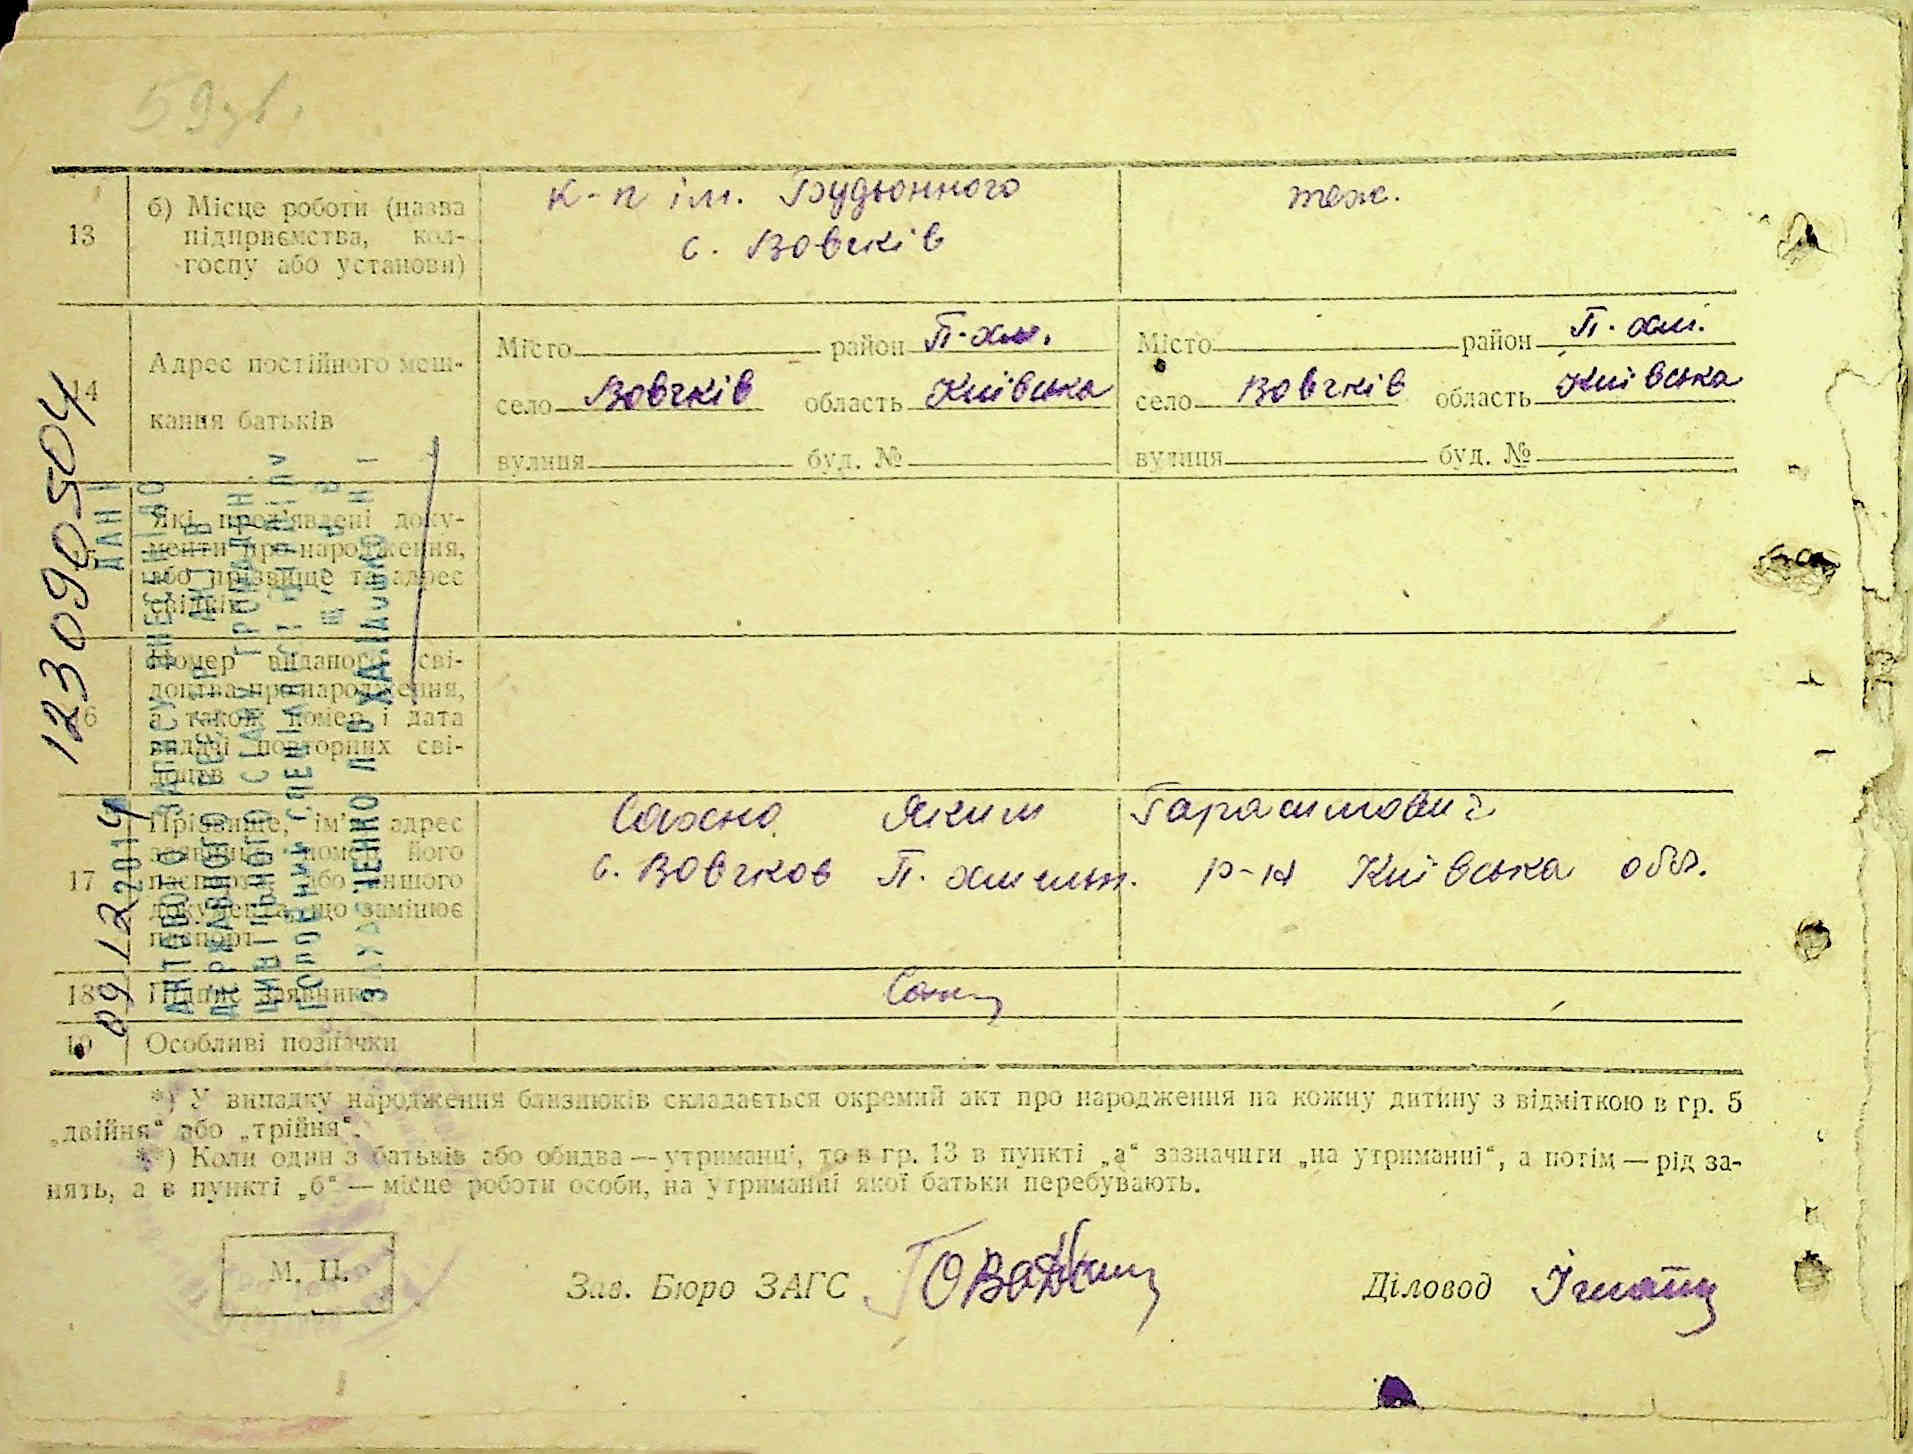 59
13 б) Місце роботи (назва підприємства, кол-госпу або установи)
к-п ім. Будьонного
с. Вовчків
теж.
14 Адрес постійного меш-
кання батьків
Місто район П-хм.
село Вовчків область Київська
вулиця буд. №
Місто район П. хмі.
село Вовчків область Київська
вулиця буд. №
Які пред'явлені доку-
менти про народження,
або прізвище та адрес
свідків
Номер виданого сві-
доцтва про народження,
а також номер і дата
видачі повторних сві-
доцтв
17 Прізвище, ім'я, адрес
заявника, номер його
паспорта або іншого
документа, що замінює
паспорт
Сахно Яким Гарасимович
с. Вовчков П. хмельн. р-н Київська обл.
18 Підпис заявника
19 Особливі позначки
*) У випадку народження близнюків складається окремий акт про народження на кожну дитину з відміткою в гр. 5
„двійня“ або „трійня“.
**) Коли один з батьків або обидва — утриманці, то в гр. 13 в пункті „а“ зазначити „на утриманні“, а потім — рід за-
нять, а в пункті „б“ — місце роботи особи, на утриманні якої батьки перебувають.
М. П.
Зав. Бюро ЗАГС
Діловод
123090504
09122014
ДАНІ
АКТОВОГО ЗАПИСУ ВНЕСЕНІ ДО
ДЕРЖАВНОГО РЕЄСТРУ АКТІВ
ЦИВІЛЬНОГО СТАНУ ГРОМАДЯН.